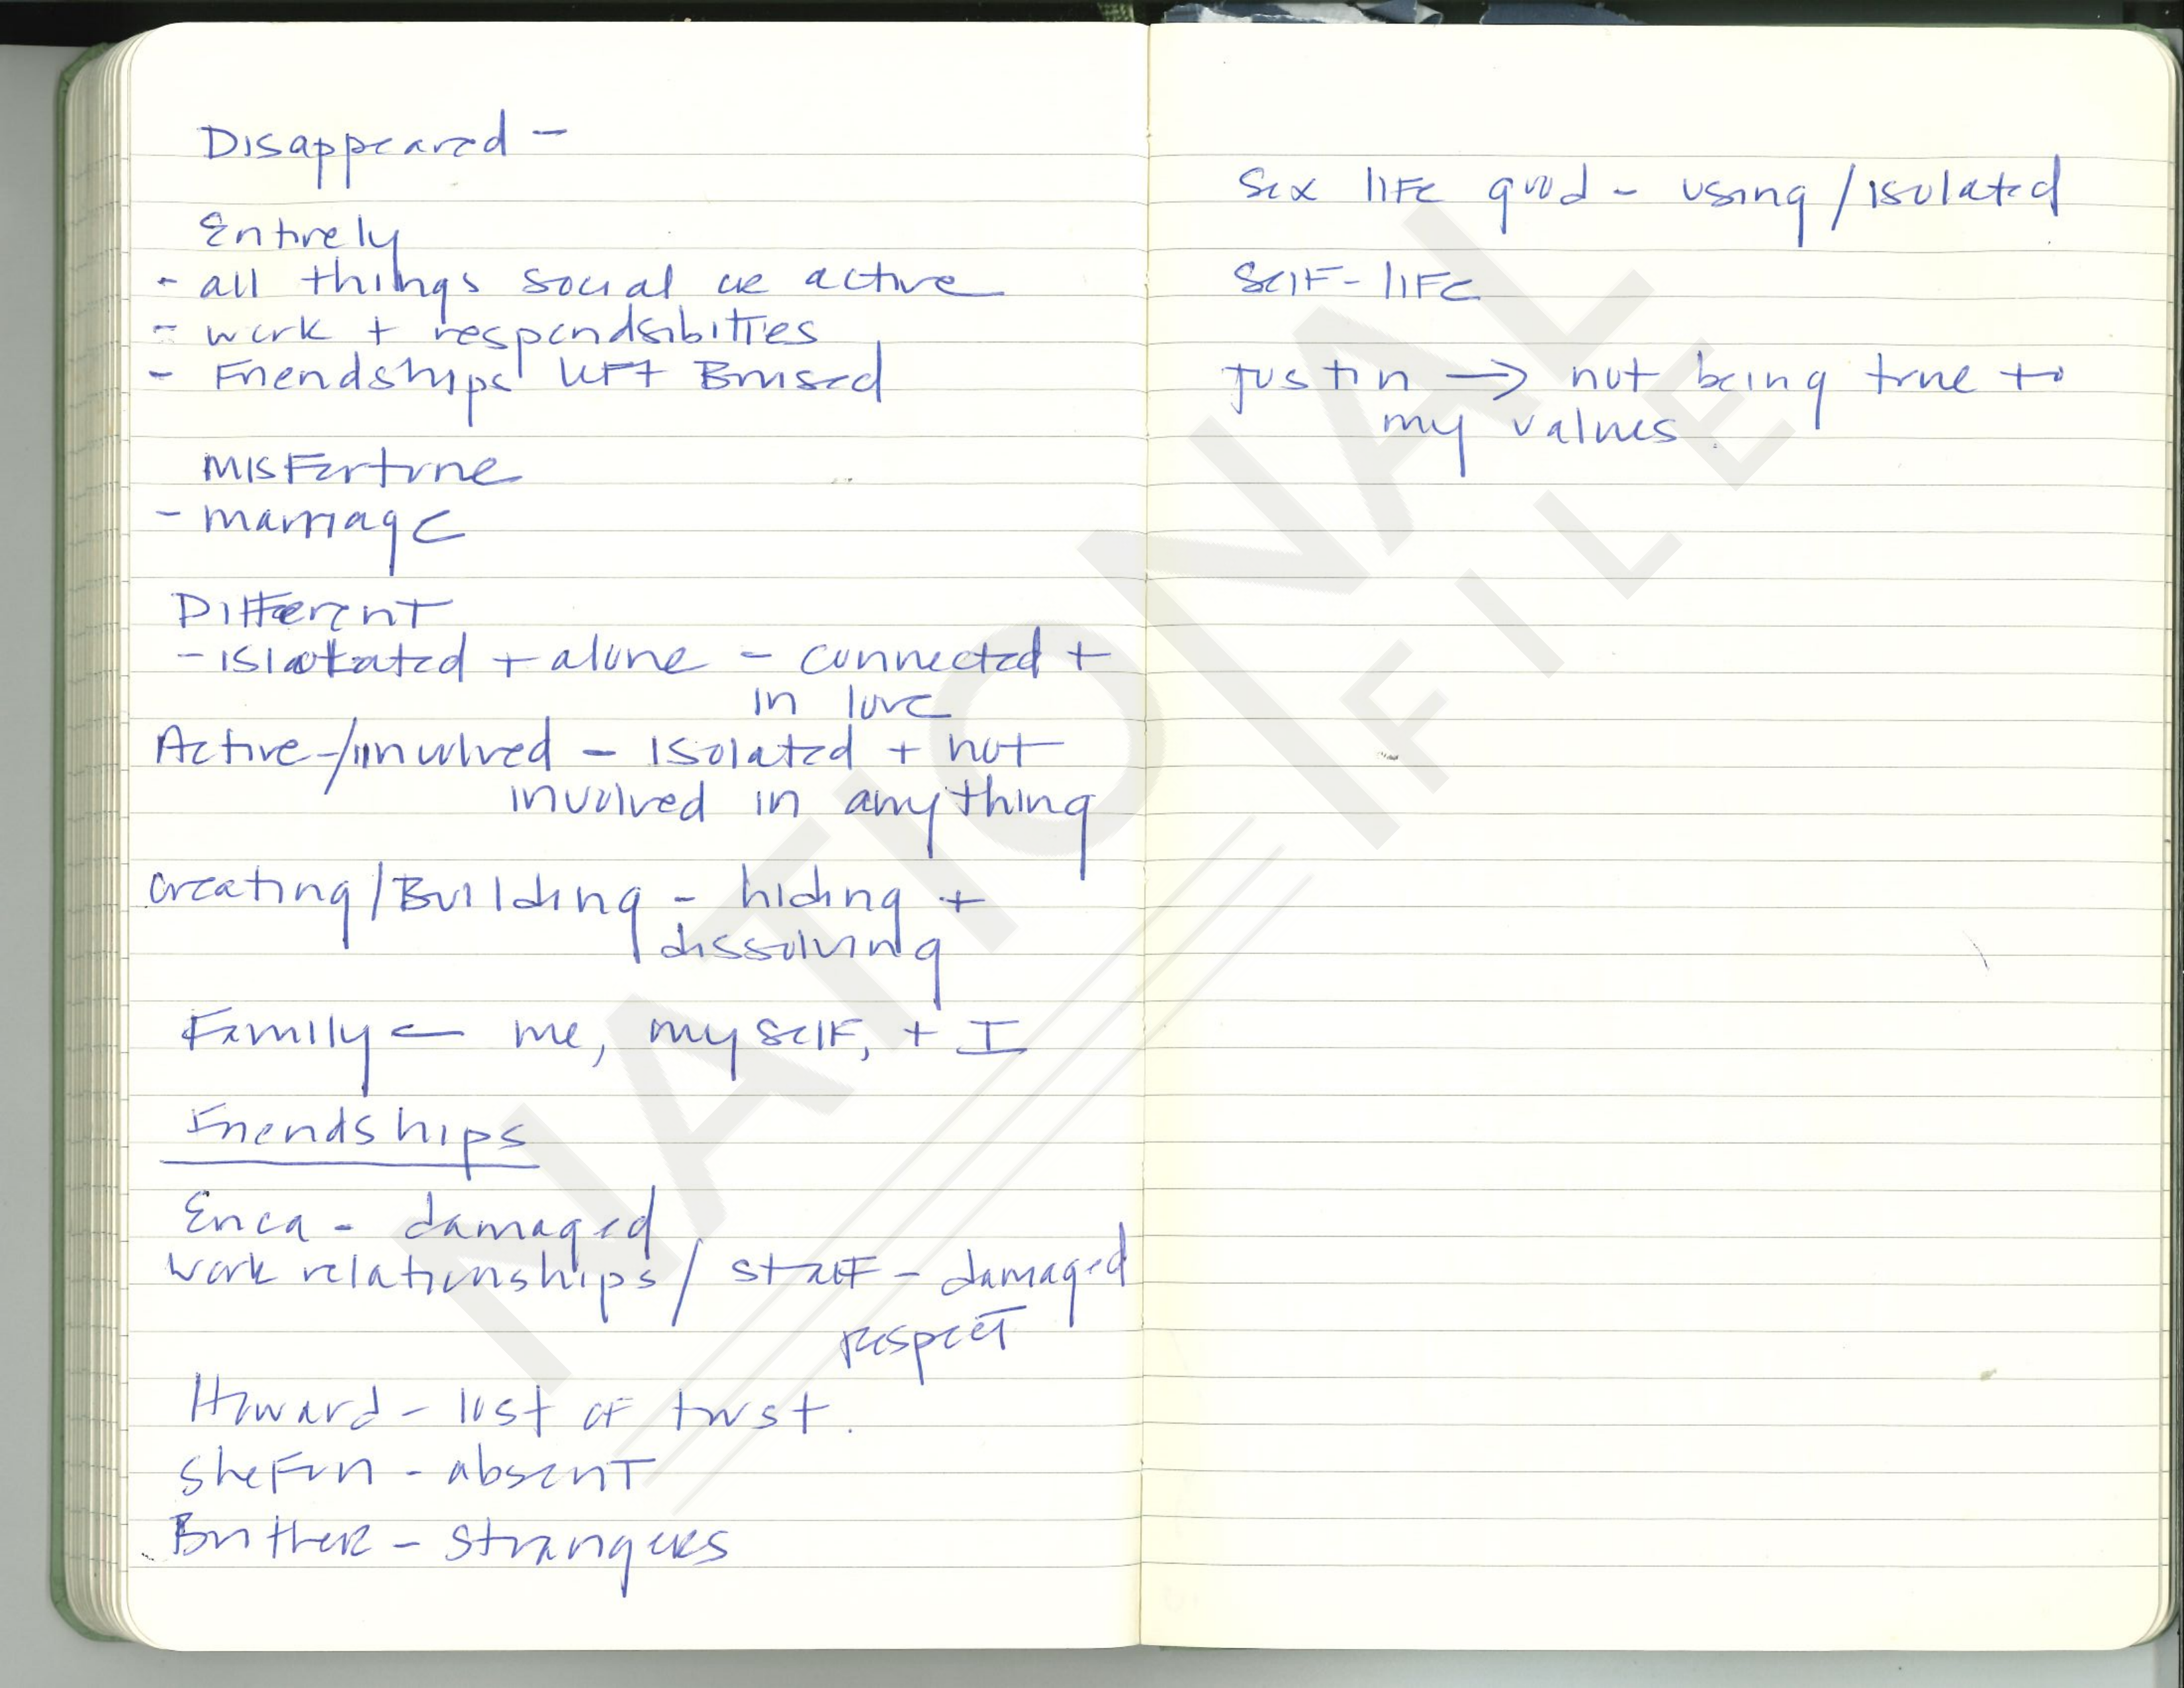 Disappeared -
Entirely
- all things social or active
- work + respondsibitties
- Friendships left Bruised
Misfortune
- marriage
Different
- isolated + alone - connected +
in love
Active/involved - Isolated + not
involved in anything
creating/Building - hiding +
dissolving
Family - me, myself, + I
Friendships
Erica - damaged
work relationships / staff - damaged
respect
Howard - lost of trust.
Shefun - absent
Brother - strangers
Sex life good - using / isolated
Self-life
Justin → not being true to
my values.
NATIONAL
FILE